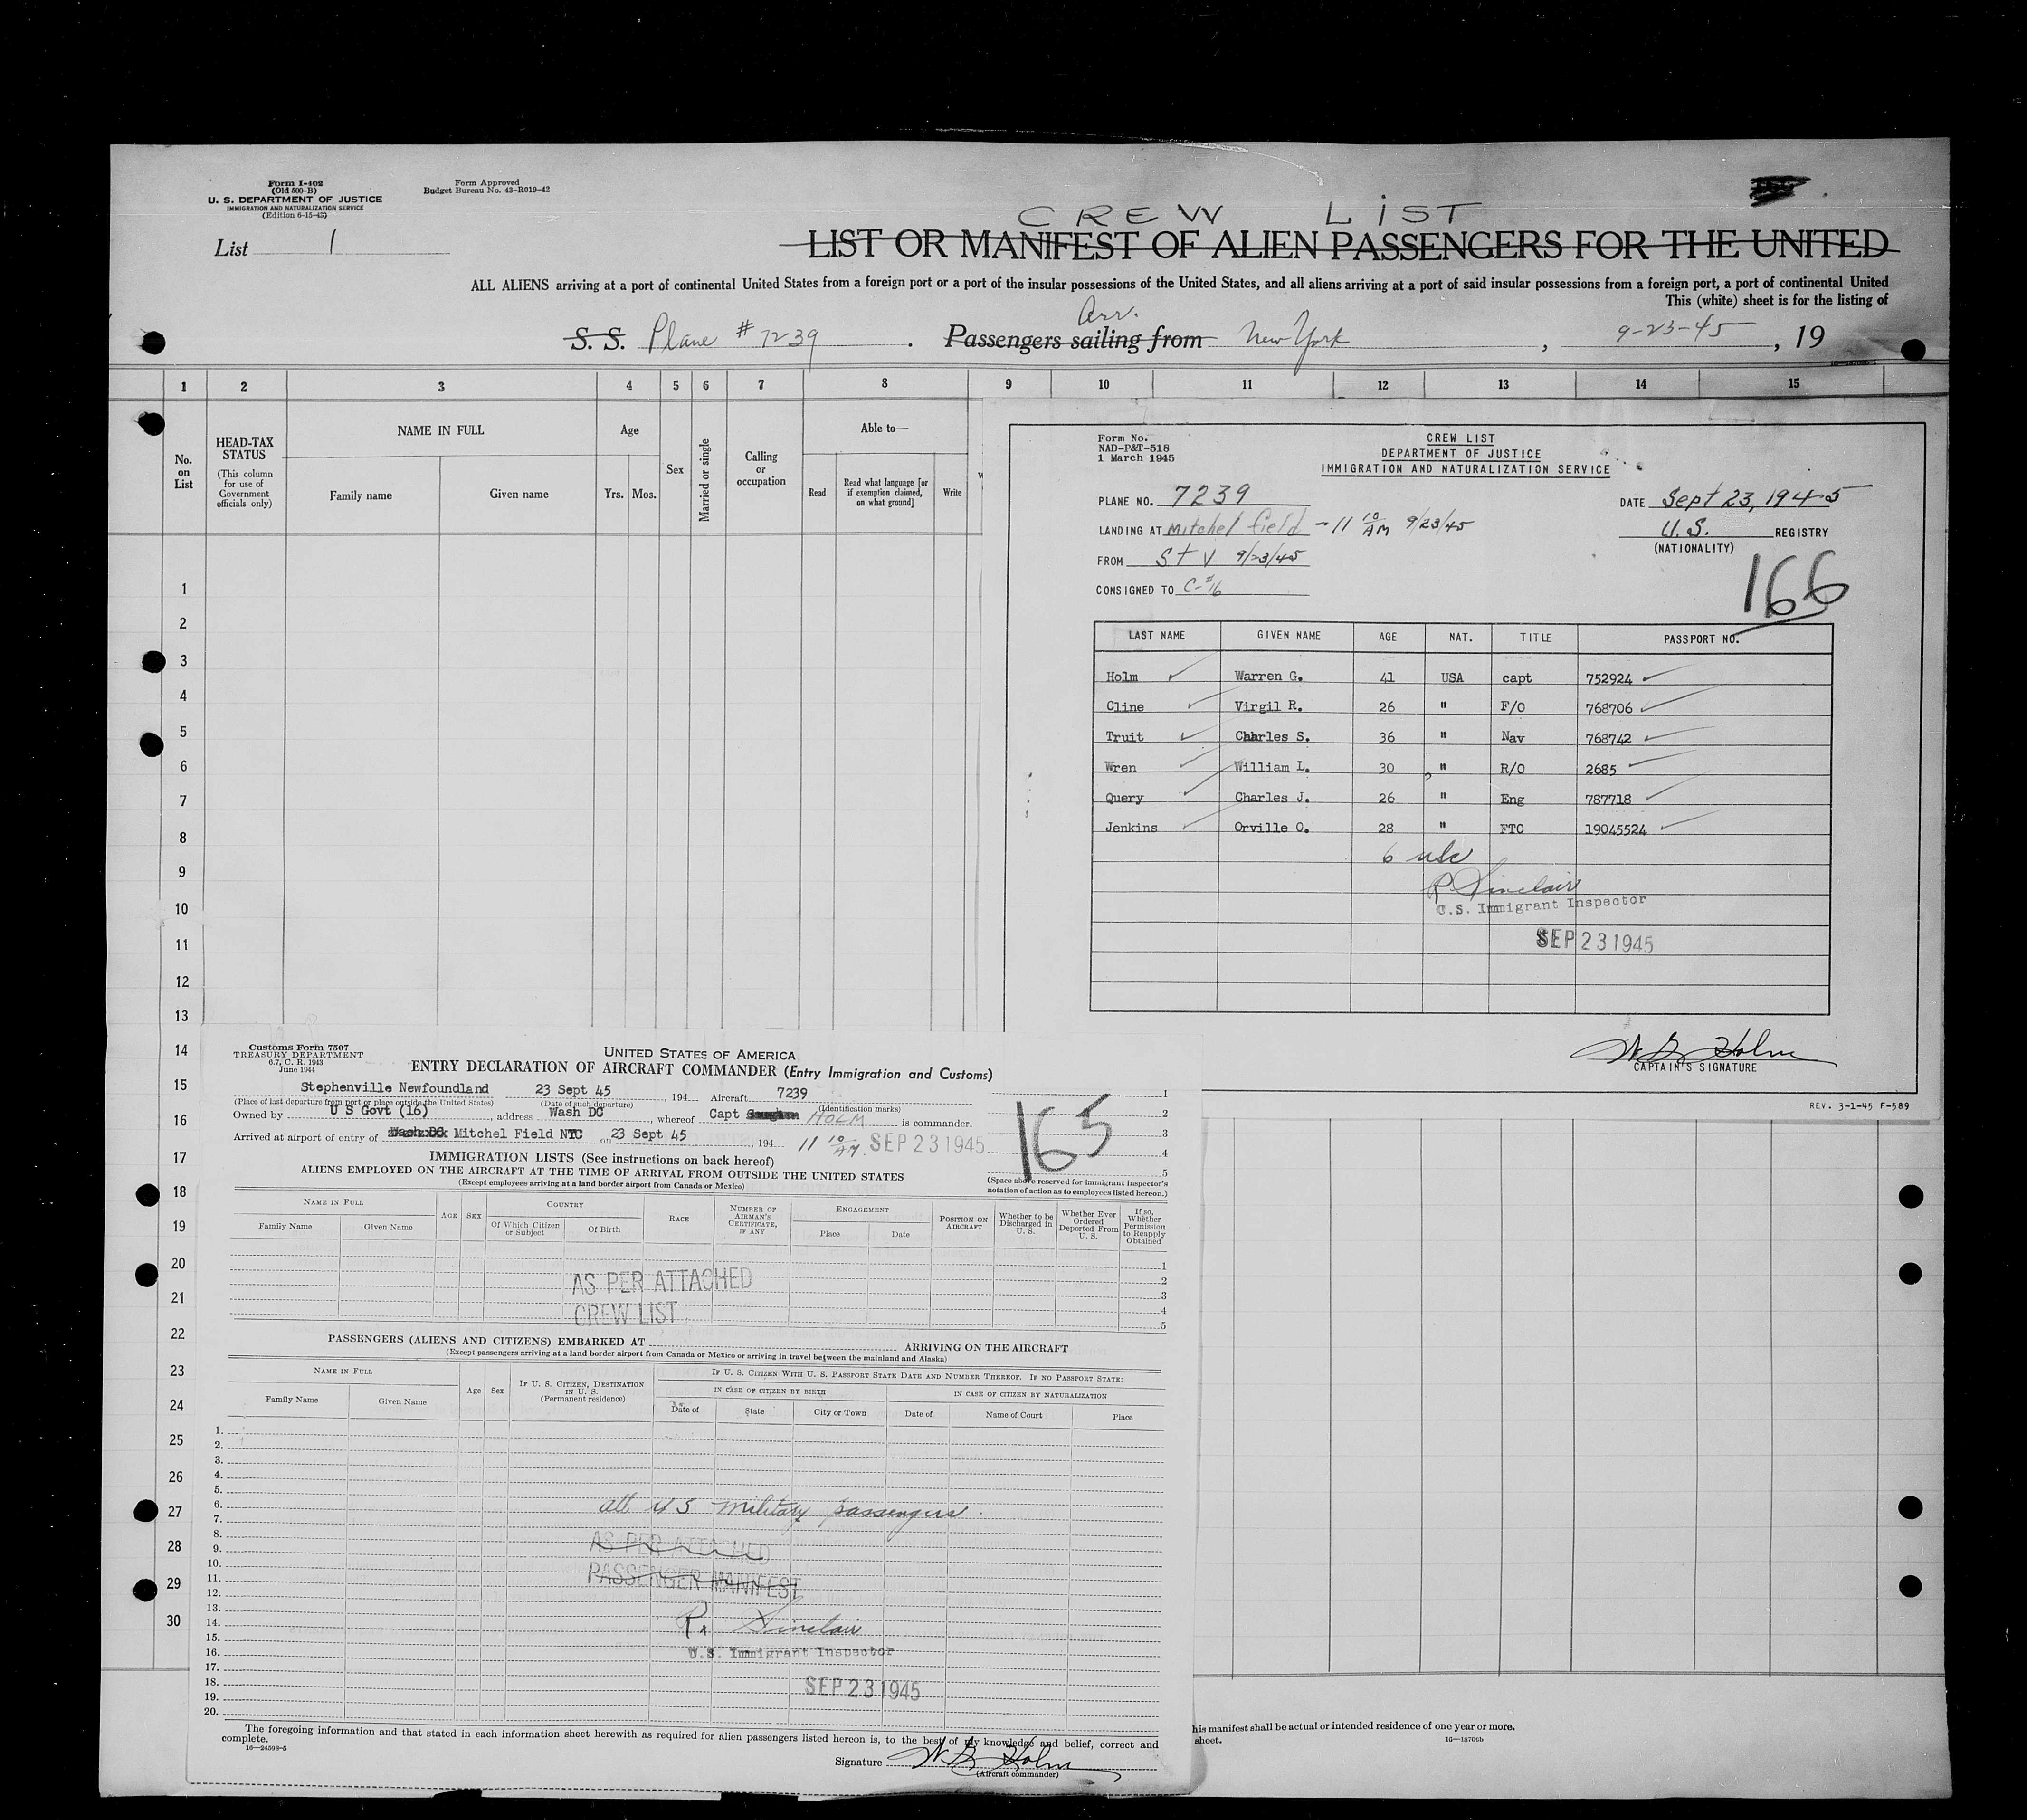 Form I-402
(Old 500-B)
U. S. DEPARTMENT OF JUSTICE
IMMIGRATION AND NATURALIZATION SERVICE
(Edition 6-15-43)
Form Approved
Budget Bureau No. 43-R019-42
List 1
CREW LIST
LIST OR MANIFEST OF ALIEN PASSENGERS FOR THE UNITED
ALL ALIENS arriving at a port of continental United States from a foreign port or a port of the insular possessions of the United States, and all aliens arriving at a port of said insular possessions from a foreign port, a port of continental United
This (white) sheet is for the listing of
Arr.
S. S. Plane # 7239 . Passengers sailing from New York , 9-23-45 , 19
1 2 3 4 5 6 7 8 9 10 11 12 13 14 15
No. on List
HEAD-TAX STATUS
(This column for use of Government officials only)
NAME IN FULL
Family name Given name
Age
Yrs. Mos.
Sex
Married or single
Calling or occupation
Able to—
Read
Read what language [or if exemption claimed, on what ground]
Write
1
2
3
4
5
6
7
8
9
10
11
12
13
14
15
16
17
18
19
20
21
22
23
24
25
26
27
28
29
30
Form No.
NAD-P&T-518
1 March 1945
CREW LIST
DEPARTMENT OF JUSTICE
IMMIGRATION AND NATURALIZATION SERVICE
PLANE NO. 7239
DATE Sept 23, 1945
LANDING AT Mitchel Field - 11 10 AM 9/23/45
U.S. REGISTRY
(NATIONALITY)
FROM St V 9/23/45
CONSIGNED TO C-#16
166
LAST NAME GIVEN NAME AGE NAT. TITLE PASSPORT NO.
Holm Warren G. 41 USA capt 752924
Cline Virgil R. 26 " F/O 768706
Truit Charles S. 36 " Nav 768742
Wren William L. 30 " R/O 2685
Query Charles J. 26 " Eng 787718
Jenkins Orville O. 28 " FTC 19045524
6 usc
R Sinclair
U.S. Immigrant Inspector
SEP 23 1945
W G Holm
CAPTAIN'S SIGNATURE
REV. 3-1-45 F-589
Customs Form 7507
TREASURY DEPARTMENT
6.7, C. R. 1943
June 1944
UNITED STATES OF AMERICA
ENTRY DECLARATION OF AIRCRAFT COMMANDER (Entry Immigration and Customs)
Stephenville Newfoundland 23 Sept 45 , 194 Aircraft 7239
(Place of last departure from port or place outside the United States) (Date of such departure) (Identification marks)
Owned by U S Govt (16) , address Wash DC , whereof Capt HOLM is commander.
Arrived at airport of entry of Mitchel Field NYC on 23 Sept 45 , 194 11 10 AM. SEP 23 1945
165
1
2
3
4
5
(Space above reserved for immigrant inspector's notation of action as to employees listed hereon.)
IMMIGRATION LISTS (See instructions on back hereof)
ALIENS EMPLOYED ON THE AIRCRAFT AT THE TIME OF ARRIVAL FROM OUTSIDE THE UNITED STATES
(Except employees arriving at a land border airport from Canada or Mexico)
NAME IN FULL
Family Name Given Name
AGE SEX
COUNTRY
Of Which Citizen or Subject Of Birth
RACE
NUMBER OF AIRMAN'S CERTIFICATE, IF ANY
ENGAGEMENT
Place Date
POSITION ON AIRCRAFT
Whether to be Discharged in U. S.
Whether Ever Ordered Deported From U. S.
If so, Whether Permission to Reapply Obtained
1
2
3
4
5
AS PER ATTACHED
CREW LIST
PASSENGERS (ALIENS AND CITIZENS) EMBARKED AT ARRIVING ON THE AIRCRAFT
(Except passengers arriving at a land border airport from Canada or Mexico or arriving in travel between the mainland and Alaska)
NAME IN FULL
Family Name Given Name
Age Sex
IF U. S. CITIZEN, DESTINATION IN U. S.
(Permanent residence)
IF U. S. CITIZEN WITH U. S. PASSPORT STATE DATE AND NUMBER THEREOF. IF NO PASSPORT STATE:
IN CASE OF CITIZEN BY BIRTH IN CASE OF CITIZEN BY NATURALIZATION
Date of State City or Town Date of Name of Court Place
1.
2.
3.
4.
5.
6.
7.
8.
9.
10.
11.
12.
13.
14.
15.
16.
17.
18.
19.
20.
all U S military passengers.
AS PER ATTACHED
PASSENGER MANIFEST
R. Sinclair
U.S. Immigrant Inspector
SEP 23 1945
The foregoing information and that stated in each information sheet herewith as required for alien passengers listed hereon is, to the best of my knowledge and belief, correct and
complete.
16—24598-5
Signature W G Holm
(Aircraft commander)
his manifest shall be actual or intended residence of one year or more.
sheet.
16—18706b